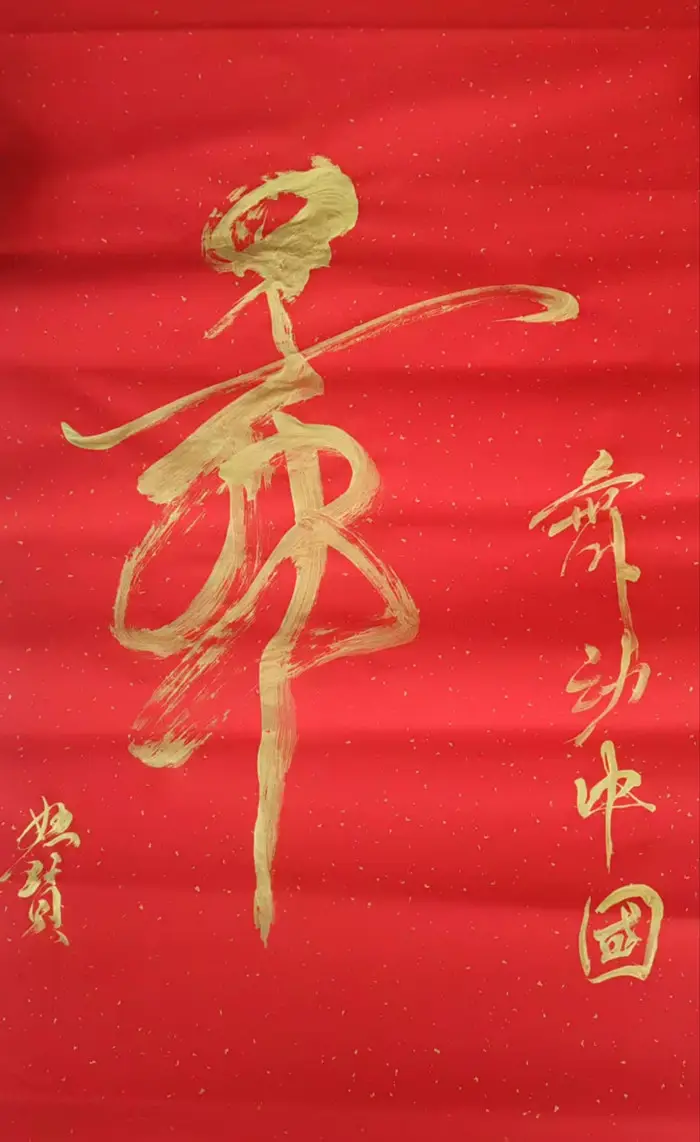 舞动中國
舞